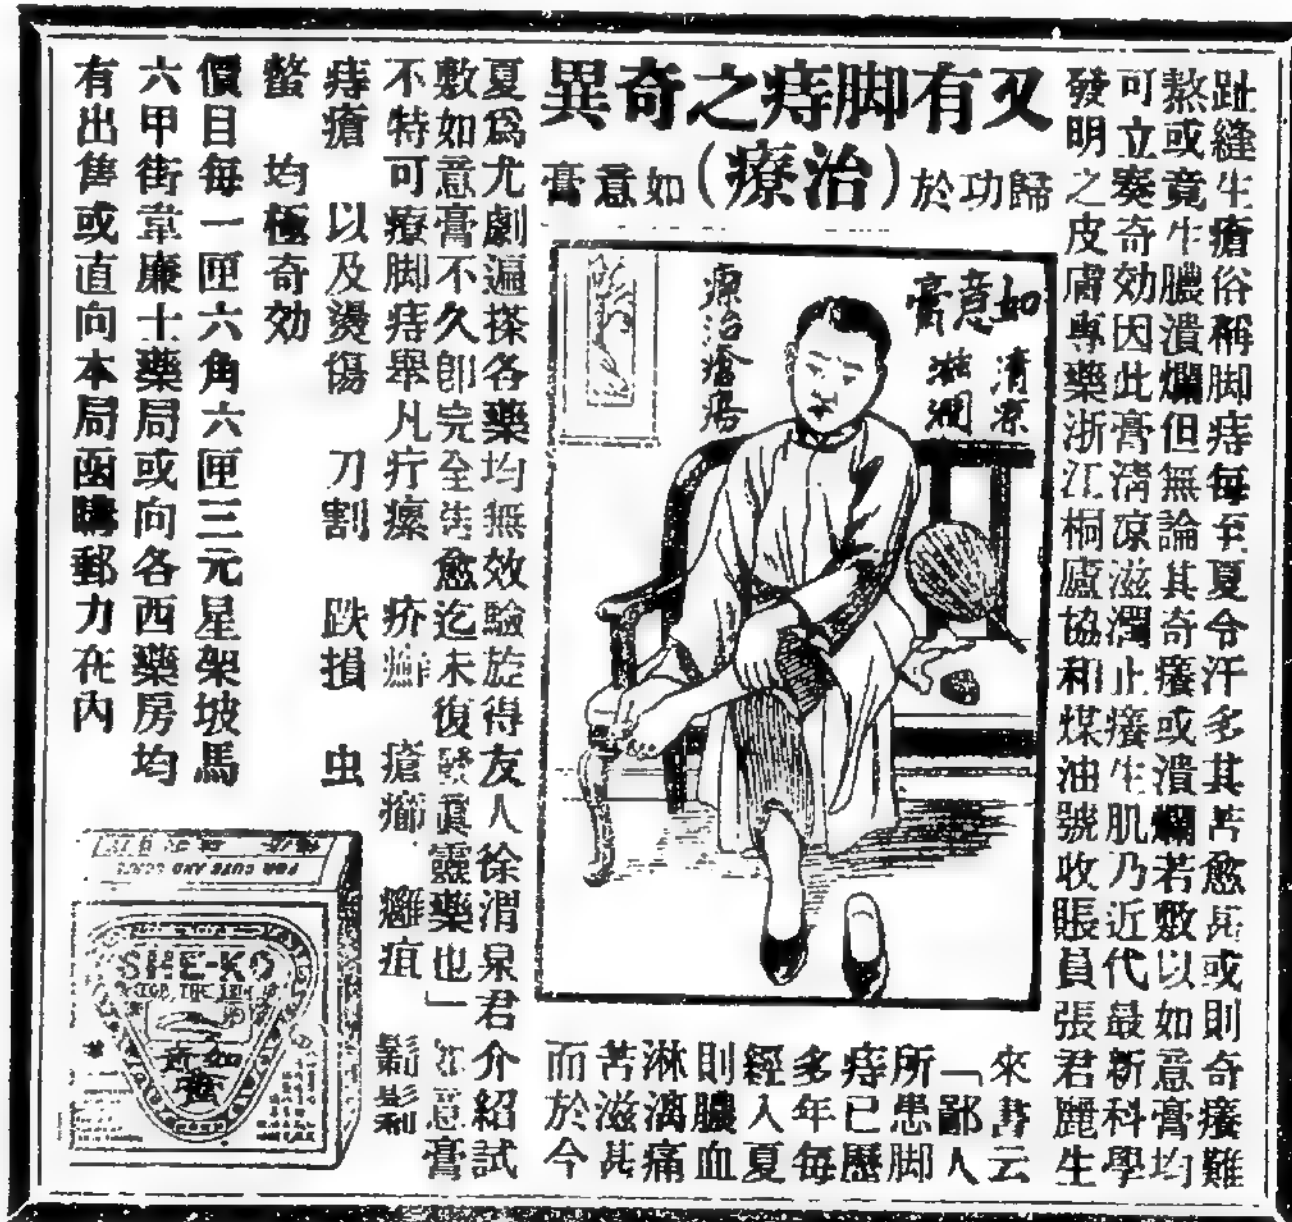 又有脚痔之奇異
(治療)
歸功於如意膏
趾縫生瘡俗稱脚痔每至夏令汗多其苦愈甚或則奇癢難
熬或竟生膿潰爛但無論其奇癢或潰爛若敷以如意膏均
可立奏奇効因此膏清凉滋潤止癢生肌乃近代最新科學
發明之皮膚專藥浙江桐廬協和煤油號收賬員張君麗生
如意膏
清凉
滋潤
療治瘡瘍
來書云
「鄙人
所患脚
痔已歷
多年每
經入夏
則膿血
淋漓痛
苦滋甚
而於今
夏爲尤劇遍搽各藥均無效驗旋得友人徐渭泉君介紹試
敷如意膏不久卽完全告愈迄未復發眞靈藥也」如意膏
不特可療脚痔舉凡疔瘰 疥癬 瘡癤 癰疽
痔瘡 以及燙傷 刀割 跌損 虫
螫 均極奇効
價目每一匣六角六匣三元星架坡馬
六甲街韋廉士藥局或向各西藥房均
有出售或直向本局函購郵力在內
FOR CUTS AND
SHE-KO
FOR THE SKIN
如意膏